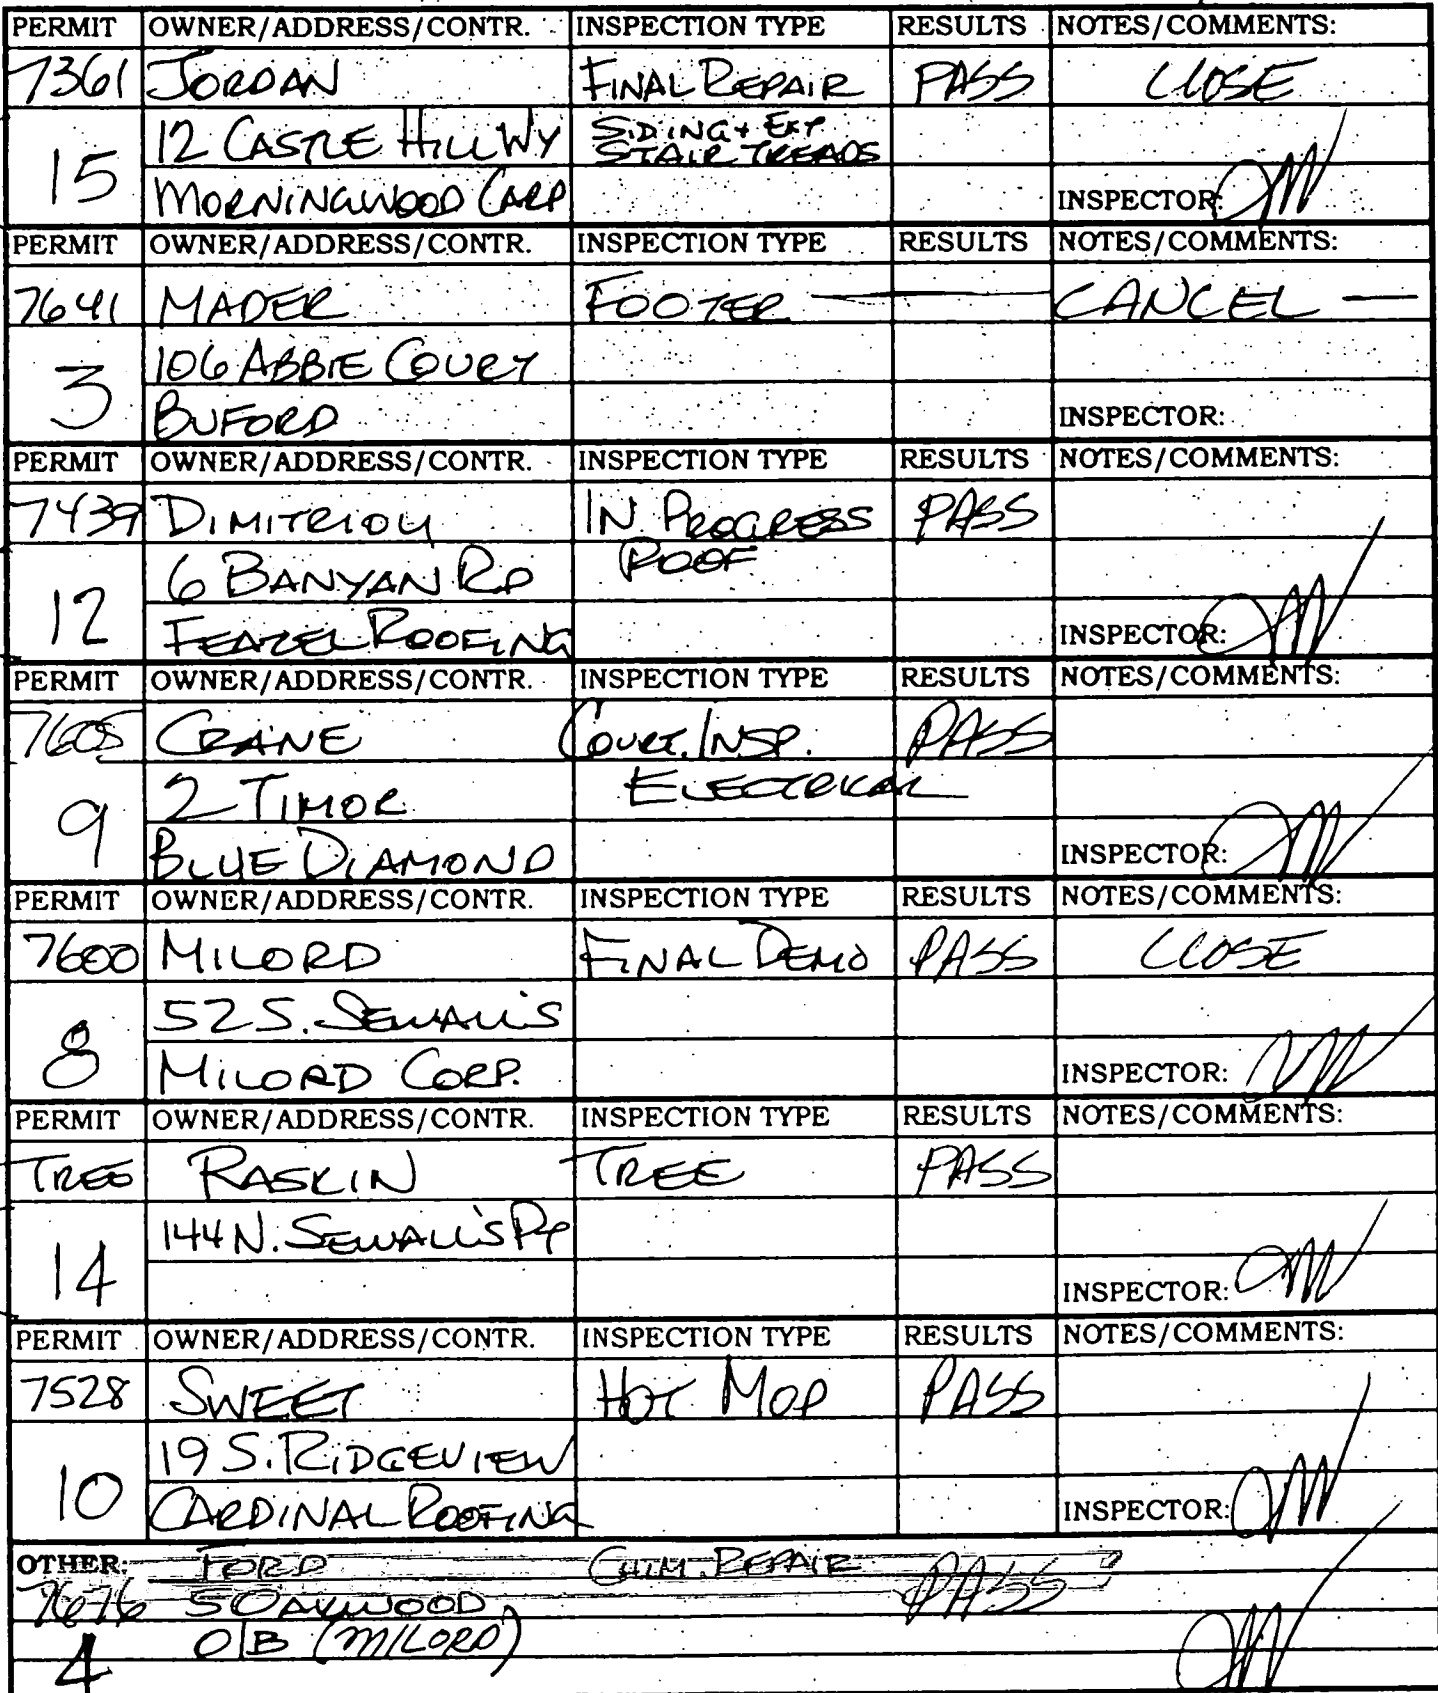 PERMIT OWNER/ADDRESS/CONTR. INSPECTION TYPE RESULTS NOTES/COMMENTS:
7361 JORDAN FINAL REPAIR PASS CLOSE
15 12 CASTLE HILL WY SIDING + EXT
STAIR TREADS
MORNINGWOOD CARP INSPECTOR:
PERMIT OWNER/ADDRESS/CONTR. INSPECTION TYPE RESULTS NOTES/COMMENTS:
7641 MADER FOOTER — CANCEL —
3 106 ABBIE COURT
BUFORD INSPECTOR:
PERMIT OWNER/ADDRESS/CONTR. INSPECTION TYPE RESULTS NOTES/COMMENTS:
7439 DIMITRIOU IN PROGRESS PASS
12 6 BANYAN RD ROOF
FEAZEL ROOFING INSPECTOR:
PERMIT OWNER/ADDRESS/CONTR. INSPECTION TYPE RESULTS NOTES/COMMENTS:
7605 CRANE COURT. INSP. PASS
9 2 TIMOR ELECTRICAL
BLUE DIAMOND INSPECTOR:
PERMIT OWNER/ADDRESS/CONTR. INSPECTION TYPE RESULTS NOTES/COMMENTS:
7600 MILORD FINAL DEMO PASS CLOSE
8 52 S. SEWALL'S
MILORD CORP. INSPECTOR:
PERMIT OWNER/ADDRESS/CONTR. INSPECTION TYPE RESULTS NOTES/COMMENTS:
TREE RASKIN TREE PASS
14 144 N. SEWALL'S PT
INSPECTOR:
PERMIT OWNER/ADDRESS/CONTR. INSPECTION TYPE RESULTS NOTES/COMMENTS:
7528 SWEET HOT MOP PASS
10 19 S. RIDGEVIEW
CARDINAL ROOFING INSPECTOR:
OTHER: FORD CHIM. REPAIR PASS
7676 5 OAKWOOD
4 O/B (MILORD)